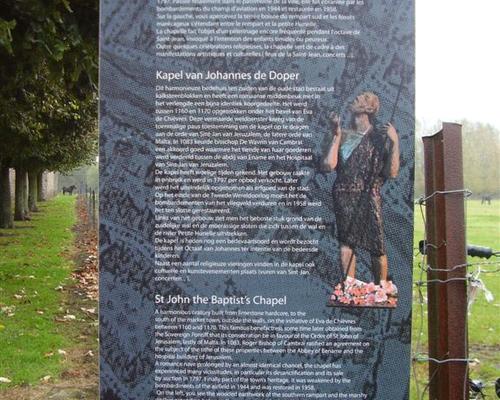 1797. Passée finalement dans le patrimoine de la Ville, elle fut ébranlée par les
bombardements du champ d'aviation en 1944 et restaurée en 1958.
Sur la gauche, vous apercevez la terrée boisée du rempart sud et les fossés
marécageux s'étendant entre le rempart et la petite Hunelle.
La chapelle fait l'objet d'un pèlerinage encore fréquenté pendant l'octave de
Saint-Jean, invoqué à l'intention des enfants timides ou peureux.
Outre quelques célébrations religieuses, la chapelle sert de cadre à des
manifestations artistiques et culturelles ( feux de la Saint-Jean, concerts ...)
Kapel van Johannes de Doper
Dit harmonieuze bedehuis ten zuiden van de oude stad bestaat uit
kalksteenblokken en heeft een romaanse middenbeuk met in
het verlengde een bijna identiek koorgedeelte. Het werd
tussen 1160 en 1170 opgetrokken onder het bevel van Eva
de Chièvres. Deze vermaarde weldoenster kreeg van de
toenmalige paus toestemming om de kapel op te dragen
aan de orde van Sint Jan van Jeruzalem, de latere orde van
Malta. In 1083 keurde bisschop De Wavrin van Cambrai
een akkoord goed waarmee het tiende van haar goederen
werd verdeeld tussen de abdij van Ename en het Hospitaal
van Sint Jan van Jeruzalem.
De kapel heeft woelige tijden gekend. Het gebouw raakte
in onbruik en werd in 1797 per opbod verkocht. Later
werd het uiteindelijk opgenomen als erfgoed van de stad.
Op het einde van de Tweede Wereldoorlog moest het de
bombardementen van het vliegveld verduren en in 1958 werd
het ten slotte gerestaureerd.
Links van het gebouw ziet men het beboste stuk grond van de
zuidelijke wal en de moerassige sloten die zich tussen de wal en
de rivier Petite Hunelle uitstrekken.
De kapel is heden nog een bedevaartsoord en wordt bezocht
tijdens het Octaaf van Johannes ter intentie van de bedeesde
kinderen.
Naast een aantal religieuze vieringen vinden in de kapel ook
culturele en kunstevenementen plaats (vuren van Sint-Jan,
concerten ... ).
St John the Baptist's Chapel
A harmonious oratory built from limestone hardcore, to the
south of the market town, outside the walls, on the initiative of Eva de Chièvres
between 1160 and 1170. This famous benefactress some time later obtained from
the Sovereign Pontiff that its consecration be in favour of the Order of St John of
Jerusalem, lastly of Malta. In 1083, Roger Bishop of Cambrai ratified an agreement on
the subject of the tithe of these properties between the Abbey of Ename and the
hospital building of Jerusalem.
A romance have prolonged by an almost identical chancel, the chapel has
experienced many vicissitudes, in particular its desanctification and its sale
by auction in 1797. Finally part of the town's heritage, it was weakened by the
bombardments of the airfield in 1944 and was restored in 1958.
On the left, you see the wooded earthwork of the southern rampart and the marshy